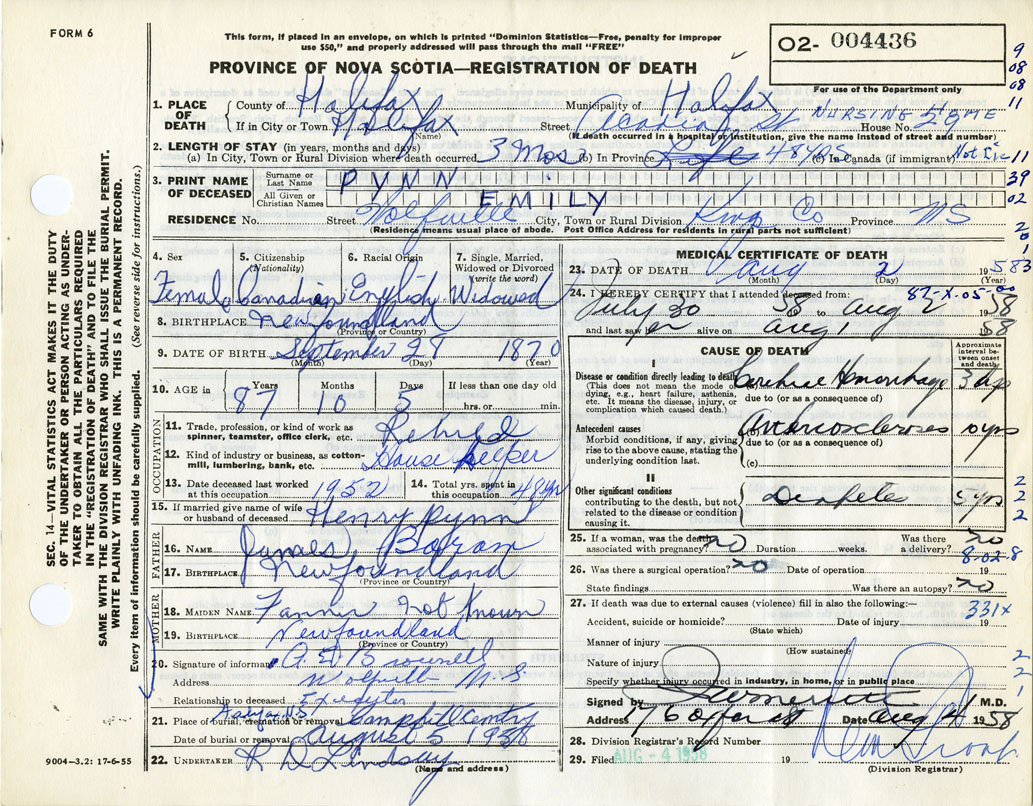 FORM 6
This form, if placed in an envelope, on which is printed "Dominion Statistics—Free, penalty for improper
use $50," and properly addressed will pass through the mail "FREE"
02- 004436
PROVINCE OF NOVA SCOTIA—REGISTRATION OF DEATH
For use of the Department only
9
08
08
11
11
39
02
2
20
SEC. 14—VITAL STATISTICS ACT MAKES IT THE DUTY
OF THE UNDERTAKER OR PERSON ACTING AS UNDER-
TAKER TO OBTAIN ALL THE PARTICULARS REQUIRED
IN THE "REGISTRATION OF DEATH" AND TO FILE THE
SAME WITH THE DIVISION REGISTRAR WHO SHALL ISSUE THE BURIAL PERMIT.
WRITE PLAINLY WITH UNFADING INK. THIS IS A PERMANENT RECORD.
Every item of information should be carefully supplied. (See reverse side for instructions.)
1. PLACE OF DEATH
County of Halifax Municipality of Halifax
If in City or Town Halifax Street St NURSING HOME House No.
(Name) (If death occurred in a hospital or institution, give the name instead of street and number)
2. LENGTH OF STAY (in years, months and days)
(a) In City, Town or Rural Division where death occurred 3 Mos (b) In Province Life 48 yrs (c) In Canada (if immigrant)
3. PRINT NAME OF DECEASED
Surname or Last Name PYNN
All Given or Christian Names EMILY
RESIDENCE No. Street Wolfville City, Town or Rural Division Kings Co Province NS
(Residence means usual place of abode. Post Office Address for residents in rural parts not sufficient)
4. Sex Female
5. Citizenship (Nationality) Canadian
6. Racial Origin English
7. Single, Married, Widowed or Divorced (write the word) Widowed
8. BIRTHPLACE Newfoundland
(Province or Country)
9. DATE OF BIRTH September 29 1870
(Month) (Day) (Year)
10. AGE in Years 87 Months 10 Days 5 If less than one day old
hrs. or min.
OCCUPATION
11. Trade, profession, or kind of work as
spinner, teamster, office clerk, etc. Retired
12. Kind of industry or business, as cotton-
mill, lumbering, bank, etc. House Keeper
13. Date deceased last worked
at this occupation 1952
14. Total yrs. spent in
this occupation 48 yrs
15. If married give name of wife
or husband of deceased Henry Pynn
FATHER
16. NAME James
17. BIRTHPLACE Newfoundland
(Province or Country)
MOTHER
18. MAIDEN NAME Fannie Not Known
19. BIRTHPLACE Newfoundland
(Province or Country)
20. Signature of informant
Address Wolfville N.S.
Relationship to deceased Executor
21. Place of burial, cremation or removal
Date of burial or removal August 5 1958
22. UNDERTAKER R D Lindsay
(Name and address)
9004-3.2: 17-6-55
MEDICAL CERTIFICATE OF DEATH
23. DATE OF DEATH Aug 2 1958
(Month) (Day) (Year)
24. I HEREBY CERTIFY that I attended deceased from:
July 30 58 to Aug 2 1958
and last saw er alive on Aug 1 58
CAUSE OF DEATH
Approximate
interval be-
tween onset
and death
I
Disease or condition directly leading to death
(This does not mean the mode of
dying, e.g., heart failure, asthenia,
etc. It means the disease, injury, or
complication which caused death.)
(a) Cerebral Hemorrhage 3 dys
due to (or as a consequence of)
Antecedent causes
Morbid conditions, if any, giving
rise to the above cause, stating the
underlying condition last.
(b) Arteriosclerosis yrs
due to (or as a consequence of)
(c)
II
Other significant conditions
contributing to the death, but not
related to the disease or condition
causing it.
Diabetes yrs
2
2
2
25. If a woman, was the death
associated with pregnancy? No Duration weeks. Was there
a delivery? No
8-02-8
26. Was there a surgical operation? No Date of operation 19
State findings Was there an autopsy? No
27. If death was due to external causes (violence) fill in also the following:—
331x
Accident, suicide or homicide? Date of injury 19
(State which)
Manner of injury
(How sustained)
Nature of injury
Specify whether injury occurred in industry, in home, or in public place
2
2
1
Signed by M.D.
Address Date Aug 4 1958
28. Division Registrar's Record Number
29. Filed AUG - 4 1958 19
(Division Registrar)